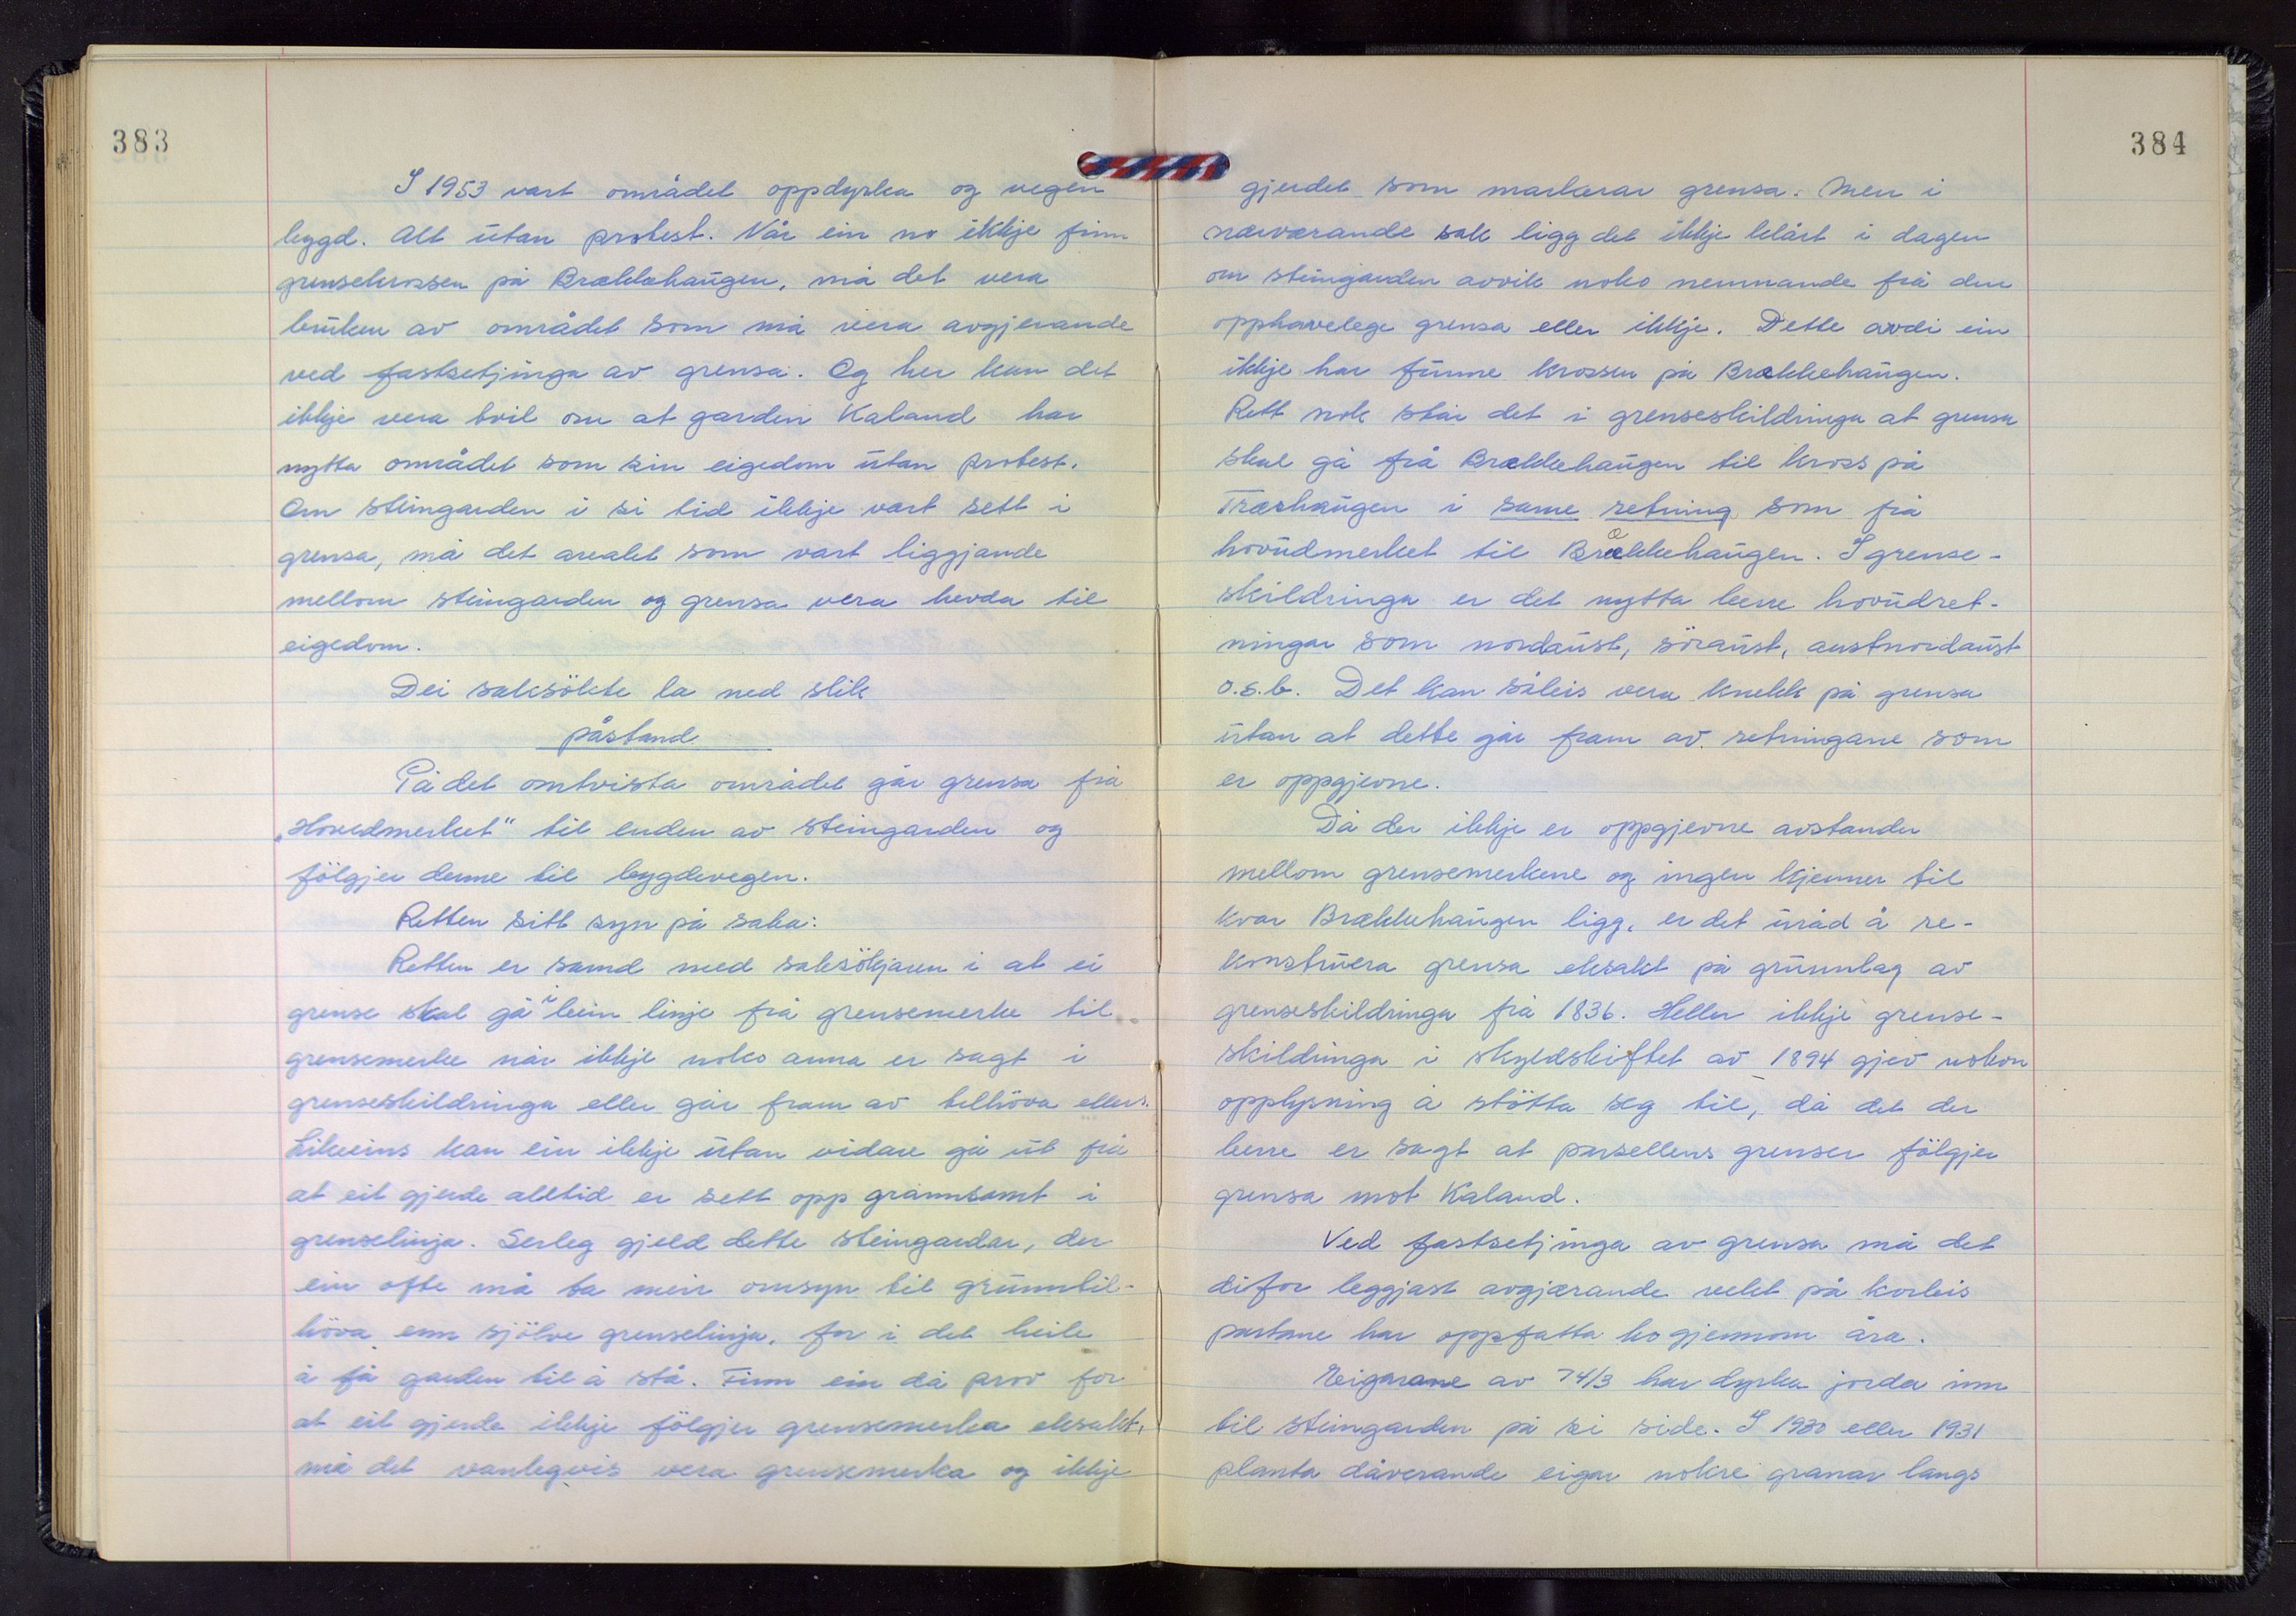 383
I 1953 vart området oppdyrka og vegen
bygd. Alt utan protest. Når ein no ikkje finn
grensekrossen på Brækkehaugen, må det vera
bruken av området som må vera avgjerande
ved fastsetjinga av grensa. Og her kan det
ikkje vera tvil om at garden Kaland har
nytta området som sin eigedom utan protest.
Om steingarden i si tid ikkje vart sett i
grensa, må det arealet som vart liggjande
mellom steingarden og grensa vera hevda til
eigedom.
Dei saksökte la ned slik
påstand
På det omtvista området går grensa frå
„Hovedmerket" til enden av steingarden og
fölgjer denne til bygdevegen.
Retten sitt syn på saka:
Retten er samd med saksökjaren i at ei
grense skal gå i bein linje frå grensemerke til
grensemerke når ikkje noko anna er sagt i
grenseskildringa eller går fram av tilhöva ellers.
Likeeins kan ein ikkje utan vidare gå ut frå
at eit gjerde alltid er sett opp grannsamt i
grenselinja. Serleg gjeld dette steingardar, der
ein ofte må ta meir omsyn til grunntil-
höva enn sjölve grenselinja, for i det heile
å få garden til å stå. Finn ein då prov for
at eit gjerde ikkje fölgjer grensemerka eksakt,
må det vanlegvis vera grensemerka og ikkje
384
gjerdet som markerar grensa. Men i
nærværande sak ligg det ikkje klårt i dagen
om steingarden avvik noko nemnande frå den
opphavelege grensa eller ikkje. Dette avdi ein
ikkje har funne krossen på Brækkehaugen.
Rett nok står det i grenseskildringa at grensa
skal gå frå Brækkehaugen til kross på
Træshaugen i same retning som frå
hovudmerket til Brækkehaugen. I grense-
skildringa er det nytta berre hovudret-
ningar som nordaust, söraust, austnordaust
o.s.b. Det kan såleis vera knekk på grensa
utan at dette går fram av retningane som
er oppgjevne.
Då der ikkje er oppgjevne avstander
mellom grensemerkene og ingen kjenner til
kvar Brækkehaugen ligg, er det uråd å re-
konstruera grensa eksakt på grunnlag av
grenseskildringa frå 1836. Heller ikkje grense-
skildringa i skyldskiftet av 1894 gjev nokon
opplysning å stötta seg til, då det der
berre er sagt at parsellens grenser fölgjer
grensa mot Kaland.
Ved fastsetjinga av grensa må det
difor leggjast avgjærande vekt på korleis
partane har oppfatta ho gjennom åra.
Eigarane av 74/3 har dyrka jorda inn
til steingarden på si side. I 1930 eller 1931
planta dåverande eigar nokre granar langs